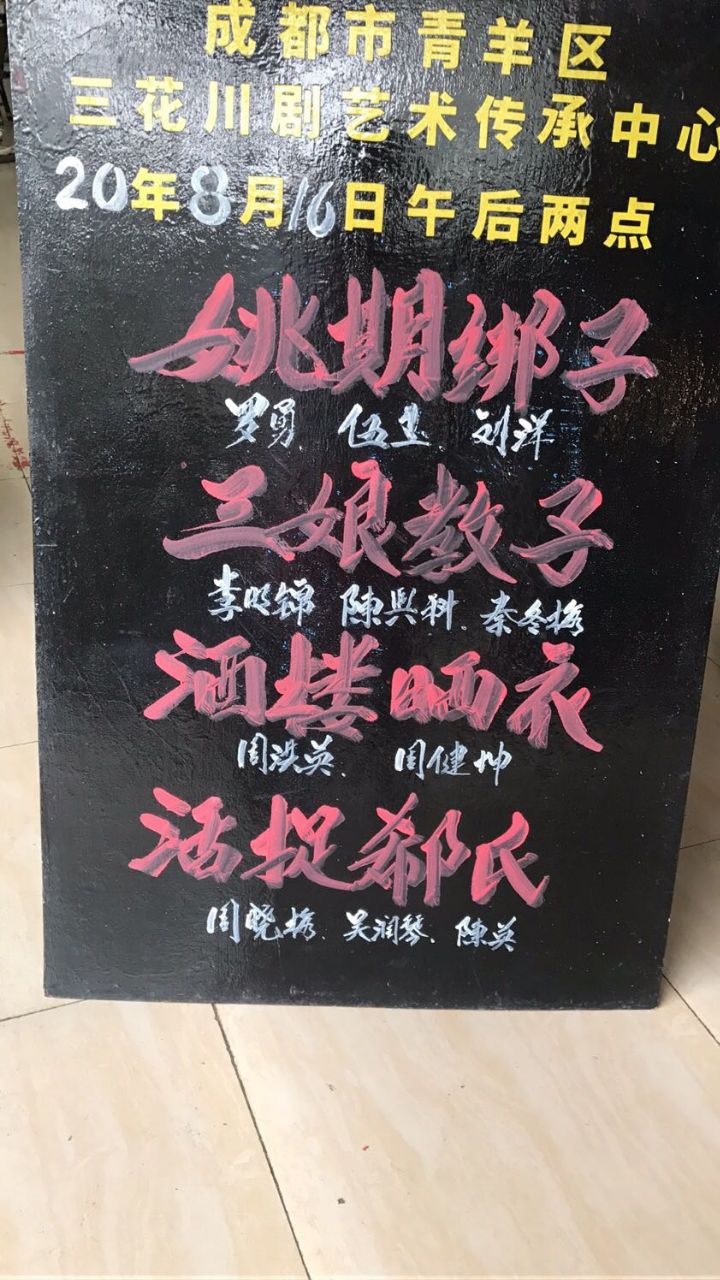 成都市青羊区
三花川剧艺术传承中心
20年8月16日午后两点
姚期绑子
罗勇、伍玉、刘洋
三娘教子
李明锦 陈兴科、秦冬梅
酒楼晒衣
周洪英、 周健坤
活捉郗氏
周晓梅、吴润琴、陈英